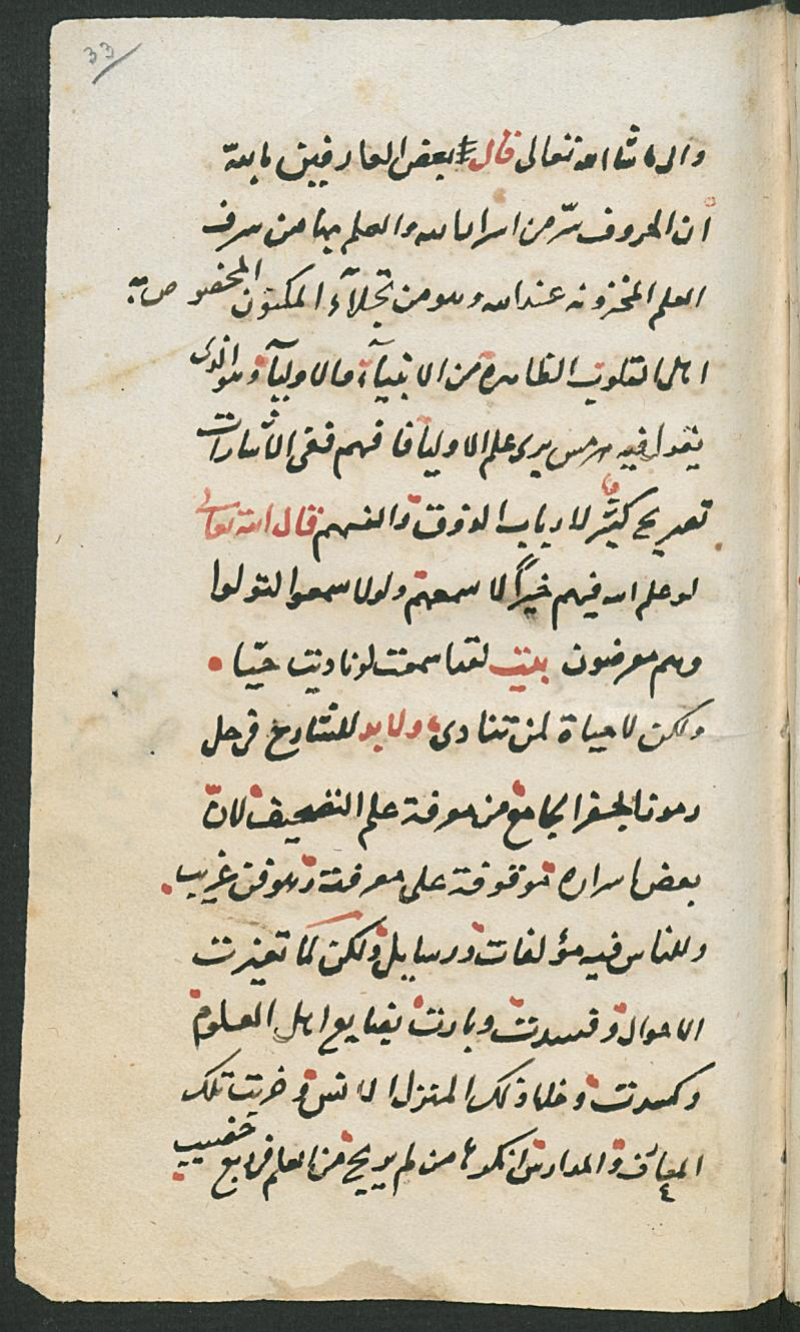 33
والا ما شاء الله تعالى قال بعض العارفين بالله
ان الحروف سرّ من اسرار الله والعلم بها من شرف
العلم المخزونه عند الله وهو من المكنون المخصوص به
اهل القلوب الطاهرة من الانبيآء والاوليآء وهو الذى
يقول فيه يرى علم الاوليآ فافهم ففى الاشارات
تصريح كثير لارباب الذوق والفهم قال الله تعالى
لو علم الله فيهم خيراً لا سمعهم ولو لا سمعوا لتولوا
وهم معرضون بيت لقد اسمعت لو ناديت حيّا
ولكن لا حياة لمن تنادى ولا بد للشارع فى حل
رموز الجفر الجامع من معرفة علم التصحيف لانّ
بعض اسراره موقوفة على معرفته وهو فن غريب
وللناس فيه مؤلفات ورسايل ولكن لما تغيرت
الاحوال وفسدت وبارت بضايع اهل العلوم
وكسدت وخلا ذلك المنزل الانس وخربت تلك
المعارف والمدارس انكرها من لم يريح من العلم فى ربع خصيب